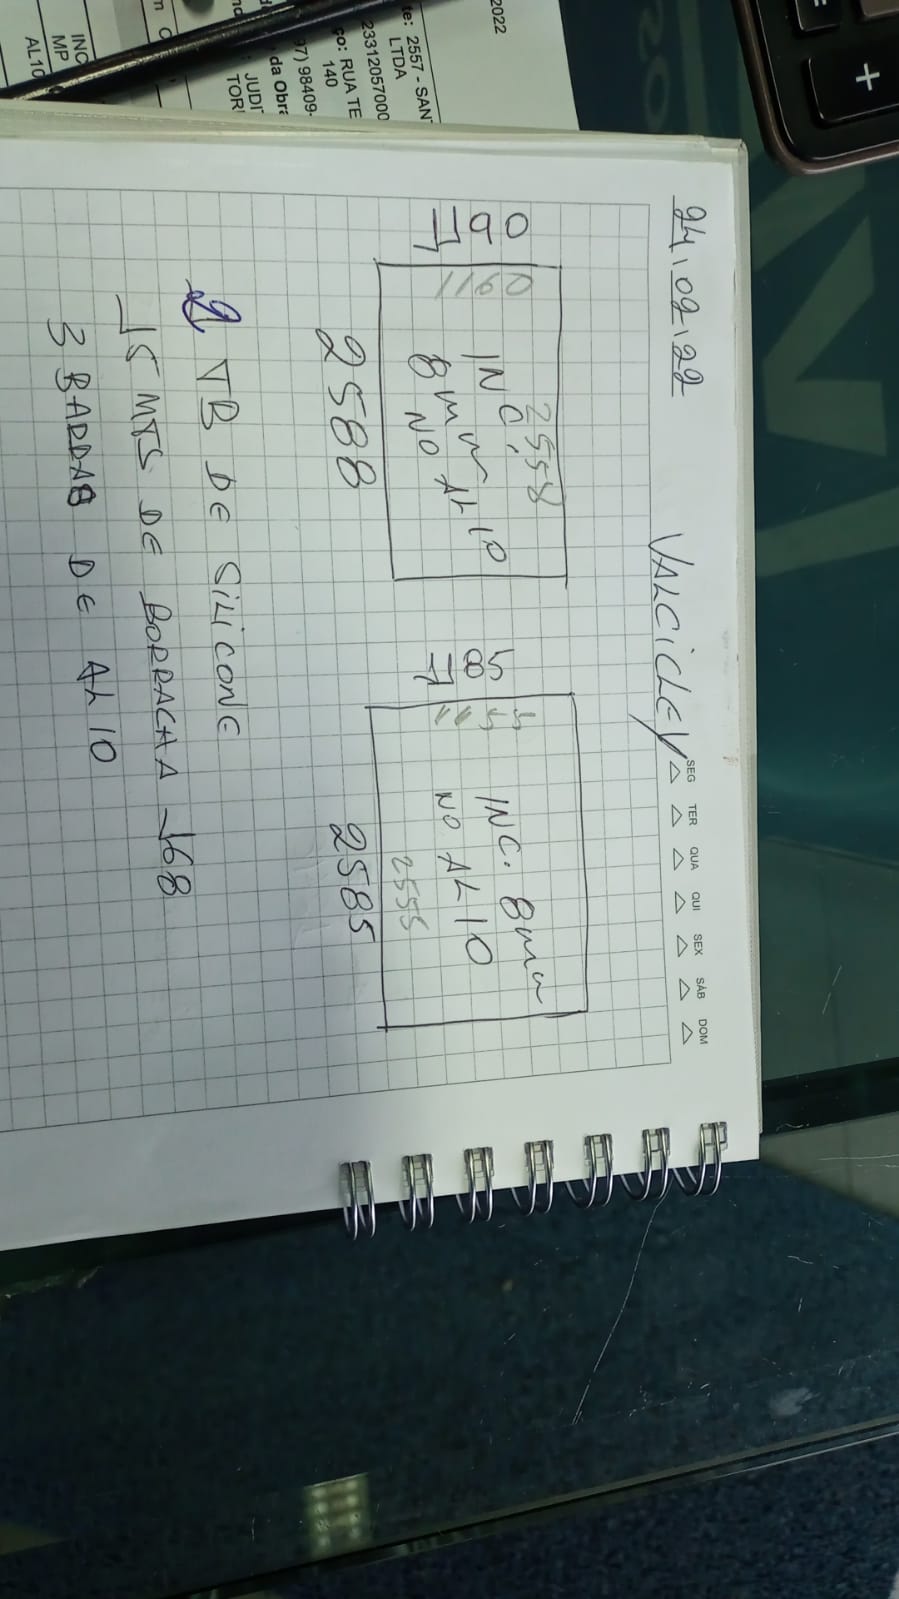 24,02,22
VALCICLEY
SEG TER QUA QUI SEX SÁB DOM
2558
INC.
8mm AL10
NO
2588
INC. 8mm
NO AL10
2555
2585
2 TB DE SILICONE
15 MTS DE BORRACHA 168
3 BARRAS DE AL 10
2022
te: 2557 - SANT
LTDA
23312057000
ço: RUA TE
140
97) 98409-
da Obra
: JUDIT
TOR
INC
MP
AL10
+